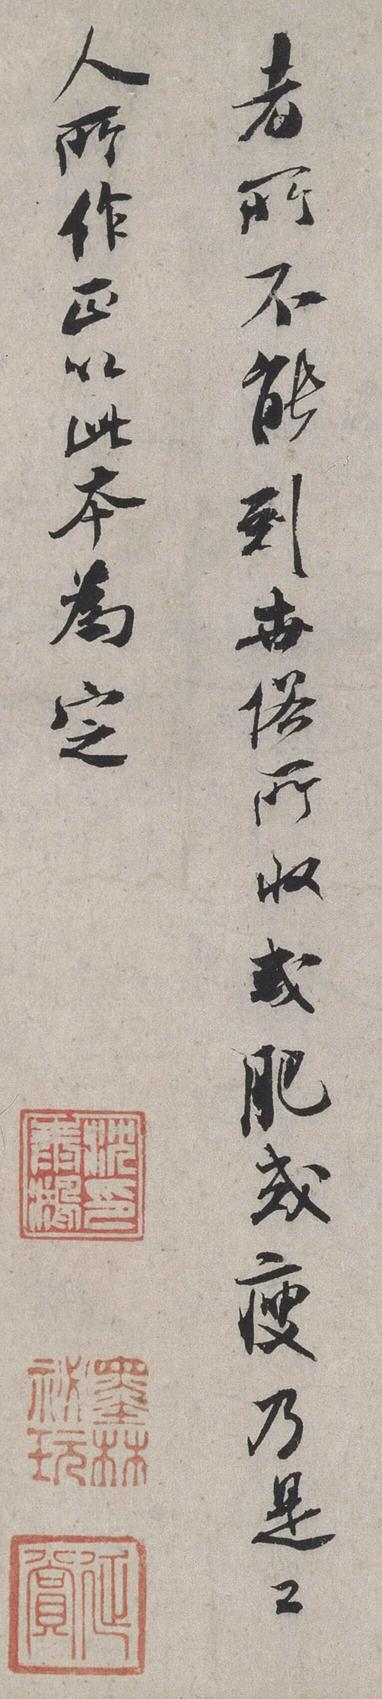 者所不能到世俗所收或肥或瘦乃是工
人所作正以此本為定
墨林
祕玩